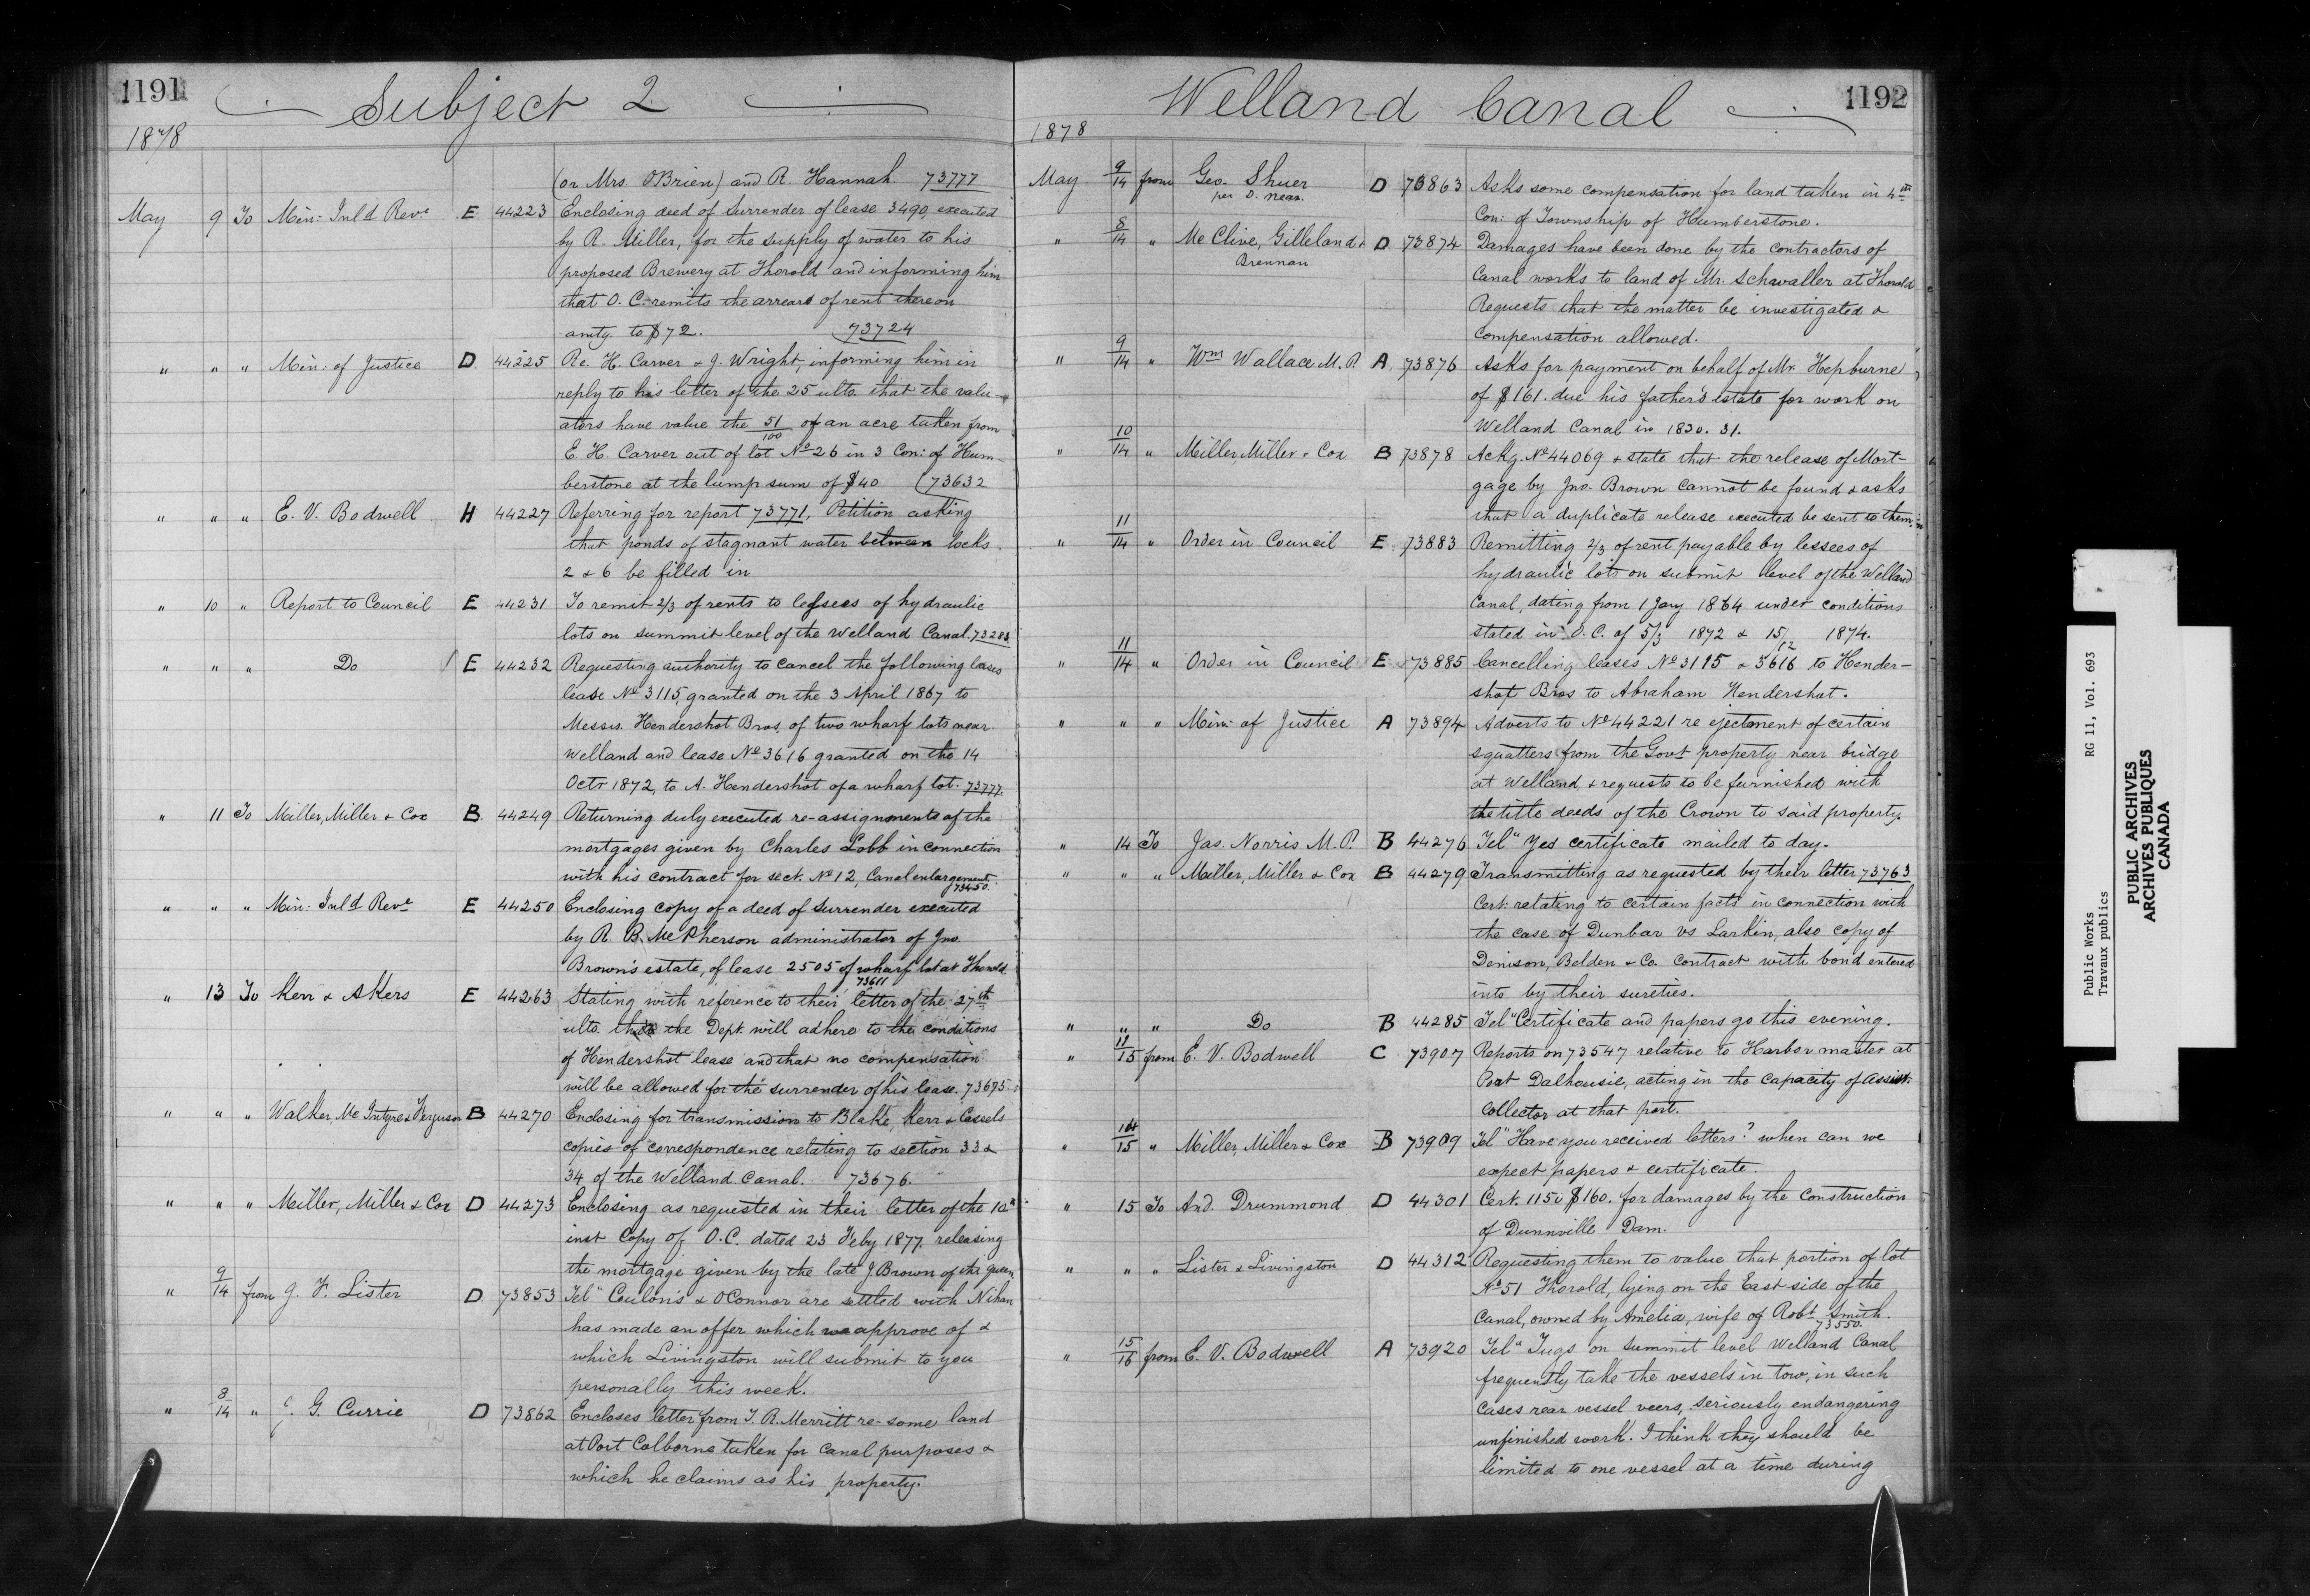 1191
Subject 2
1878
(or Mrs. OBrien) and R. Hannah. 73777
May 9 To Min: Inld Reve E 44223 Enclosing deed of Surrender of lease 3490, executed
by R. Miller, for the supply of water to his
proposed Brewery at Thorold and informing him
that O. C. remits the arrears of rent thereon
amtg to $72. 73724
" " " Min: of Justice D 44225 Re. H. Carver & J. Wright, informing him in
reply to his letter of the 25 ulto. that the valu-
ators have value the 51/100 of an acre taken from
E. H. Carver out of lot No 26 in 3 Con: of Hum-
berstone at the lump sum of $40 (73632
" " " E. V. Bodwell H 44227 Referring for report 73771, Petition asking
that ponds of stagnant water between locks
2 & 6 be filled in
" 10 " Report to Council E 44231 To remit 2/3 of rents to lessees of hydraulic
lots on summit level of the Welland Canal. 73283
" " " Do E 44232 Requesting authority to cancel the following leases
lease No 3115, granted on the 3 April 1867 to
Messrs. Hendershot Bros. of two wharf lots near
Welland and lease No 3616 granted on the 14
Octr 1872, to A. Hendershot of a wharf lot. 73777.
" 11 To Miller, Miller & Cox B 44249 Returning duly executed re-assignments of the
mortgages given by Charles Lobb in connection
with his contract for sect. No 12, Canal enlargement
73450.
" " " Min: Inld Reve E 44250 Enclosing copy of a deed of Surrender executed
by R. B. McPherson administrator of Jno.
Brown's estate, of lease 2505 of wharf lot at Thorold.
73611
" 13 To Kerr & Akers E 44263 Stating with reference to their letter of the 27th
ulto. that the Dept will adhere to the conditions
of Hendershot lease and that no compensation
will be allowed for the surrender of his lease. 73695
" " " Walker, McIntyre & Ferguson B 44270 Enclosing for transmission to Blake, Kerr & Cassels
copies of correspondence relating to section 33 &
34 of the Welland Canal. 73676.
" " " Miller, Miller & Cox D 44273 Enclosing as requested in their letter of the 10th
inst Copy of O.C. dated 23 Feby 1877, releasing
the mortgage given by the late J Brown of the queen
" 9/14 from J. F. Lister D 73853 Tel" Coulon's & OConnor are settled with Nihan
has made an offer which we approve of &
which Livingston will submit to you
personally this week.
" 8/14 " G. Currie D 73862 Encloses letter from T. R. Merritt re- some land
at Port Colborne taken for Canal purposes &
which he claims as his property.
Welland Canal
1192
1878
May 9/14 from Geo. Shuer D 73863 Asks some compensation for land taken in 4th
per D. Near.
Con: of Township of Humberstone.
" 8/14 " McClive, Gilleland & D 73874 Damages have been done by the contractors of
Brennan
Canal works to land of Mr. Schwaller at Thorold
Requests that the matter be investigated &
compensation allowed.
" 9/14 " Wm Wallace M.P. A 73876 Asks for payment on behalf of Mr. Hepburne
of $161. due his father's estate for work on
Welland Canal in 1830. 31.
" 10/14 " Miller, Miller & Cox B 73878 Ackg. No 44069 & state that the release of Mort-
gage by Jno. Brown cannot be found & asks
that a duplicate release executed be sent to them
" 11/14 " Order in Council E 73883 Remitting 2/3 of rent payable by lessees of
hydraulic lots on submit level of the Welland
Canal, dating from 1 Jany 1864 under conditions
stated in O. C. of 5/3 1872 & 15/12 1874.
" 11/14 " Order in Council E 73885 Cancelling leases No 3115 & 3616 to Hender-
shot Bros to Abraham Hendershot.
" " " Min: of Justice A 73894 Adverts to No 44221 re ejectment of certain
squatters from the Govt property near bridge
at Welland, & requests to be furnished with
the title deeds of the Crown to said property.
" 14 To Jas. Norris M.P. B 44276 Tel" Yes certificate mailed to day.
" " " Miller, Miller & Cox B 44279 Transmitting as requested by their letter 73763
Cert. relating to certain facts in connection with
the case of Dunbar vs Larkin, also copy of
Denison, Belden & Co. Contract with bond entered
into by their sureties.
" " " Do B 44285 Tel" Certificate and papers go this evening.
" 11/15 from E. V. Bodwell C 73907 Reports on 73547 relative to Harbor master at
Port Dalhousie, acting in the capacity of assist.
Collector at that port.
" 14/15 " Miller, Miller & Cox B 73909 Tel" Have you received letters? when can we
expect papers & certificate.
" 15 To And. Drummond D 44301 Cert. 1150 $160. for damages by the Construction
of Dunnville Dam.
" " " Lister & Livingston D 44312 Requesting them to value that portion of lot
No 51 Thorold, lying on the East side of the
Canal, owned by Amelia, wife of Robt Smith.
73550.
" 15/16 from E. V. Bodwell A 73920 Tel" Tugs on Summit level Welland Canal
frequently take the vessels in tow, in such
cases rear vessel veers, seriously endangering
unfinished work. I think they should be
limited to one vessel at a time during
Public Works RG 11, Vol. 693
Travaux publics
PUBLIC ARCHIVES
ARCHIVES PUBLIQUES
CANADA